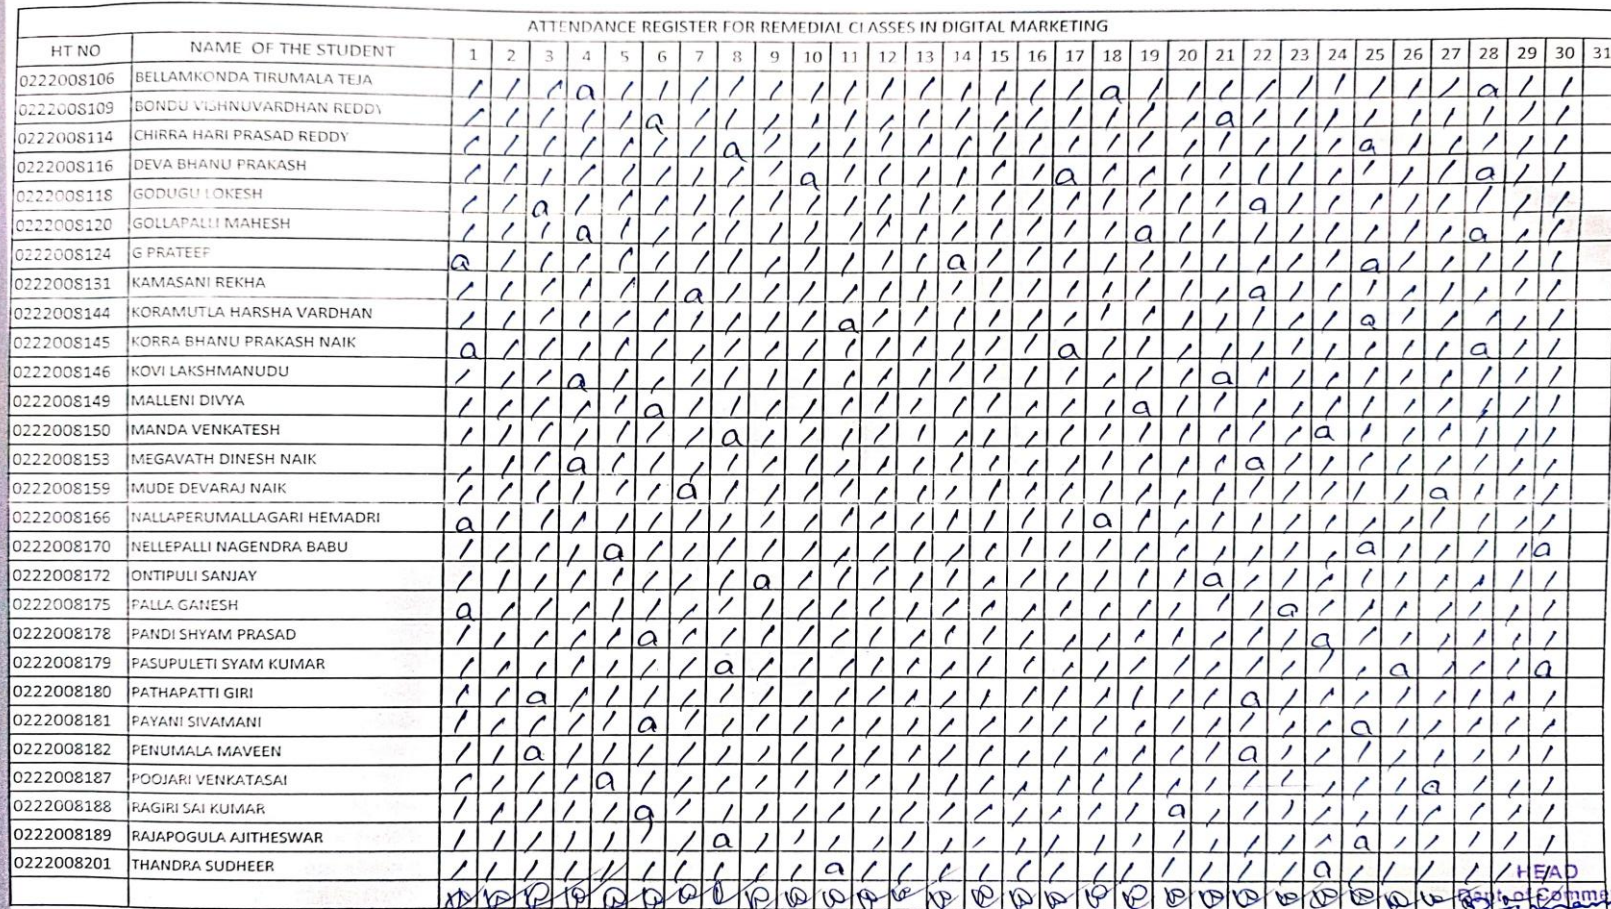 ATTENDANCE REGISTER FOR REMEDIAL CLASSES IN DIGITAL MARKETING
HT NO NAME OF THE STUDENT 1 2 3 4 5 6 7 8 9 10 11 12 13 14 15 16 17 18 19 20 21 22 23 24 25 26 27 28 29 30 31
0222008106 BELLAMKONDA TIRUMALA TEJA / / / a / / / / / / / / / / / / / a / / / / / / / / / a / /
0222008109 BONDU VISHNUVARDHAN REDDY / / / / / a / / / / / / / / / / / / / / a / / / / / / / / /
0222008114 CHIRRA HARI PRASAD REDDY / / / / / / / a / / / / / / / / / / / / / / / / a / / / / /
0222008116 DEVA BHANU PRAKASH / / / / / / / / / a / / / / / / a / / / / / / / / / / a / /
0222008118 GODUGU LOKESH / / a / / / / / / / / / / / / / / / / / / a / / / / / / / /
0222008120 GOLLAPALLI MAHESH / / / a / / / / / / / / / / / / / / a / / / / / / / / a / /
0222008124 G PRATEEF a / / / / / / / / / / / / a / / / / / / / / / / a / / / / /
0222008131 KAMASANI REKHA / / / / / / a / / / / / / / / / / / / / / a / / / / / / / /
0222008144 KORAMUTLA HARSHA VARDHAN / / / / / / / / / / a / / / / / / / / / / / / / a / / / / /
0222008145 KORRA BHANU PRAKASH NAIK a / / / / / / / / / / / / / / / a / / / / / / / / / / a / /
0222008146 KOVI LAKSHMANUDU / / / a / / / / / / / / / / / / / / / / a / / / / / / / / /
0222008149 MALLENI DIVYA / / / / / a / / / / / / / / / / / / a / / / / / / / / / / /
0222008150 MANDA VENKATESH / / / / / / / a / / / / / / / / / / / / / / / a / / / / / /
0222008153 MEGAVATH DINESH NAIK / / / a / / / / / / / / / / / / / / / / / a / / / / / / / /
0222008159 MUDE DEVARAJ NAIK / / / / / / a / / / / / / / / / / / / / / / / / / / a / / /
0222008166 NALLAPERUMALLAGARI HEMADRI a / / / / / / / / / / / / / / / / a / / / / / / / / / / / /
0222008170 NELLEPALLI NAGENDRA BABU / / / / a / / / / / / / / / / / / / / / / / / / a / / / / a
0222008172 ONTIPULI SANJAY / / / / / / / / a / / / / / / / / / / / a / / / / / / / / /
0222008175 PALLA GANESH a / / / / / / / / / / / / / / / / / / / / / a / / / / / / /
0222008178 PANDI SHYAM PRASAD / / / / / a / / / / / / / / / / / / / / / / / a / / / / / /
0222008179 PASUPULETI SYAM KUMAR / / / / / / / a / / / / / / / / / / / / / / / / / a / / / a
0222008180 PATHAPATTI GIRI / / a / / / / / / / / / / / / / / / / / / a / / / / / / / /
0222008181 PAYANI SIVAMANI / / / / / a / / / / / / / / / / / / / / / / / / a / / / / /
0222008182 PENUMALA MAVEEN / / a / / / / / / / / / / / / / / / / / / a / / / / / / / /
0222008187 POOJARI VENKATASAI / / / / a / / / / / / / / / / / / / / / / / / / / / a / / /
0222008188 RAGIRI SAI KUMAR / / / / / a / / / / / / / / / / / / / a / / / / / / / / / /
0222008189 RAJAPOGULA AJITHESWAR / / / / / / / a / / / / / / / / / / / / / / / / a / / / / /
0222008201 THANDRA SUDHEER / / / / / / / / / / a / / / / / / / / / / / / a / / / / /
HEAD
Dept. of Comme